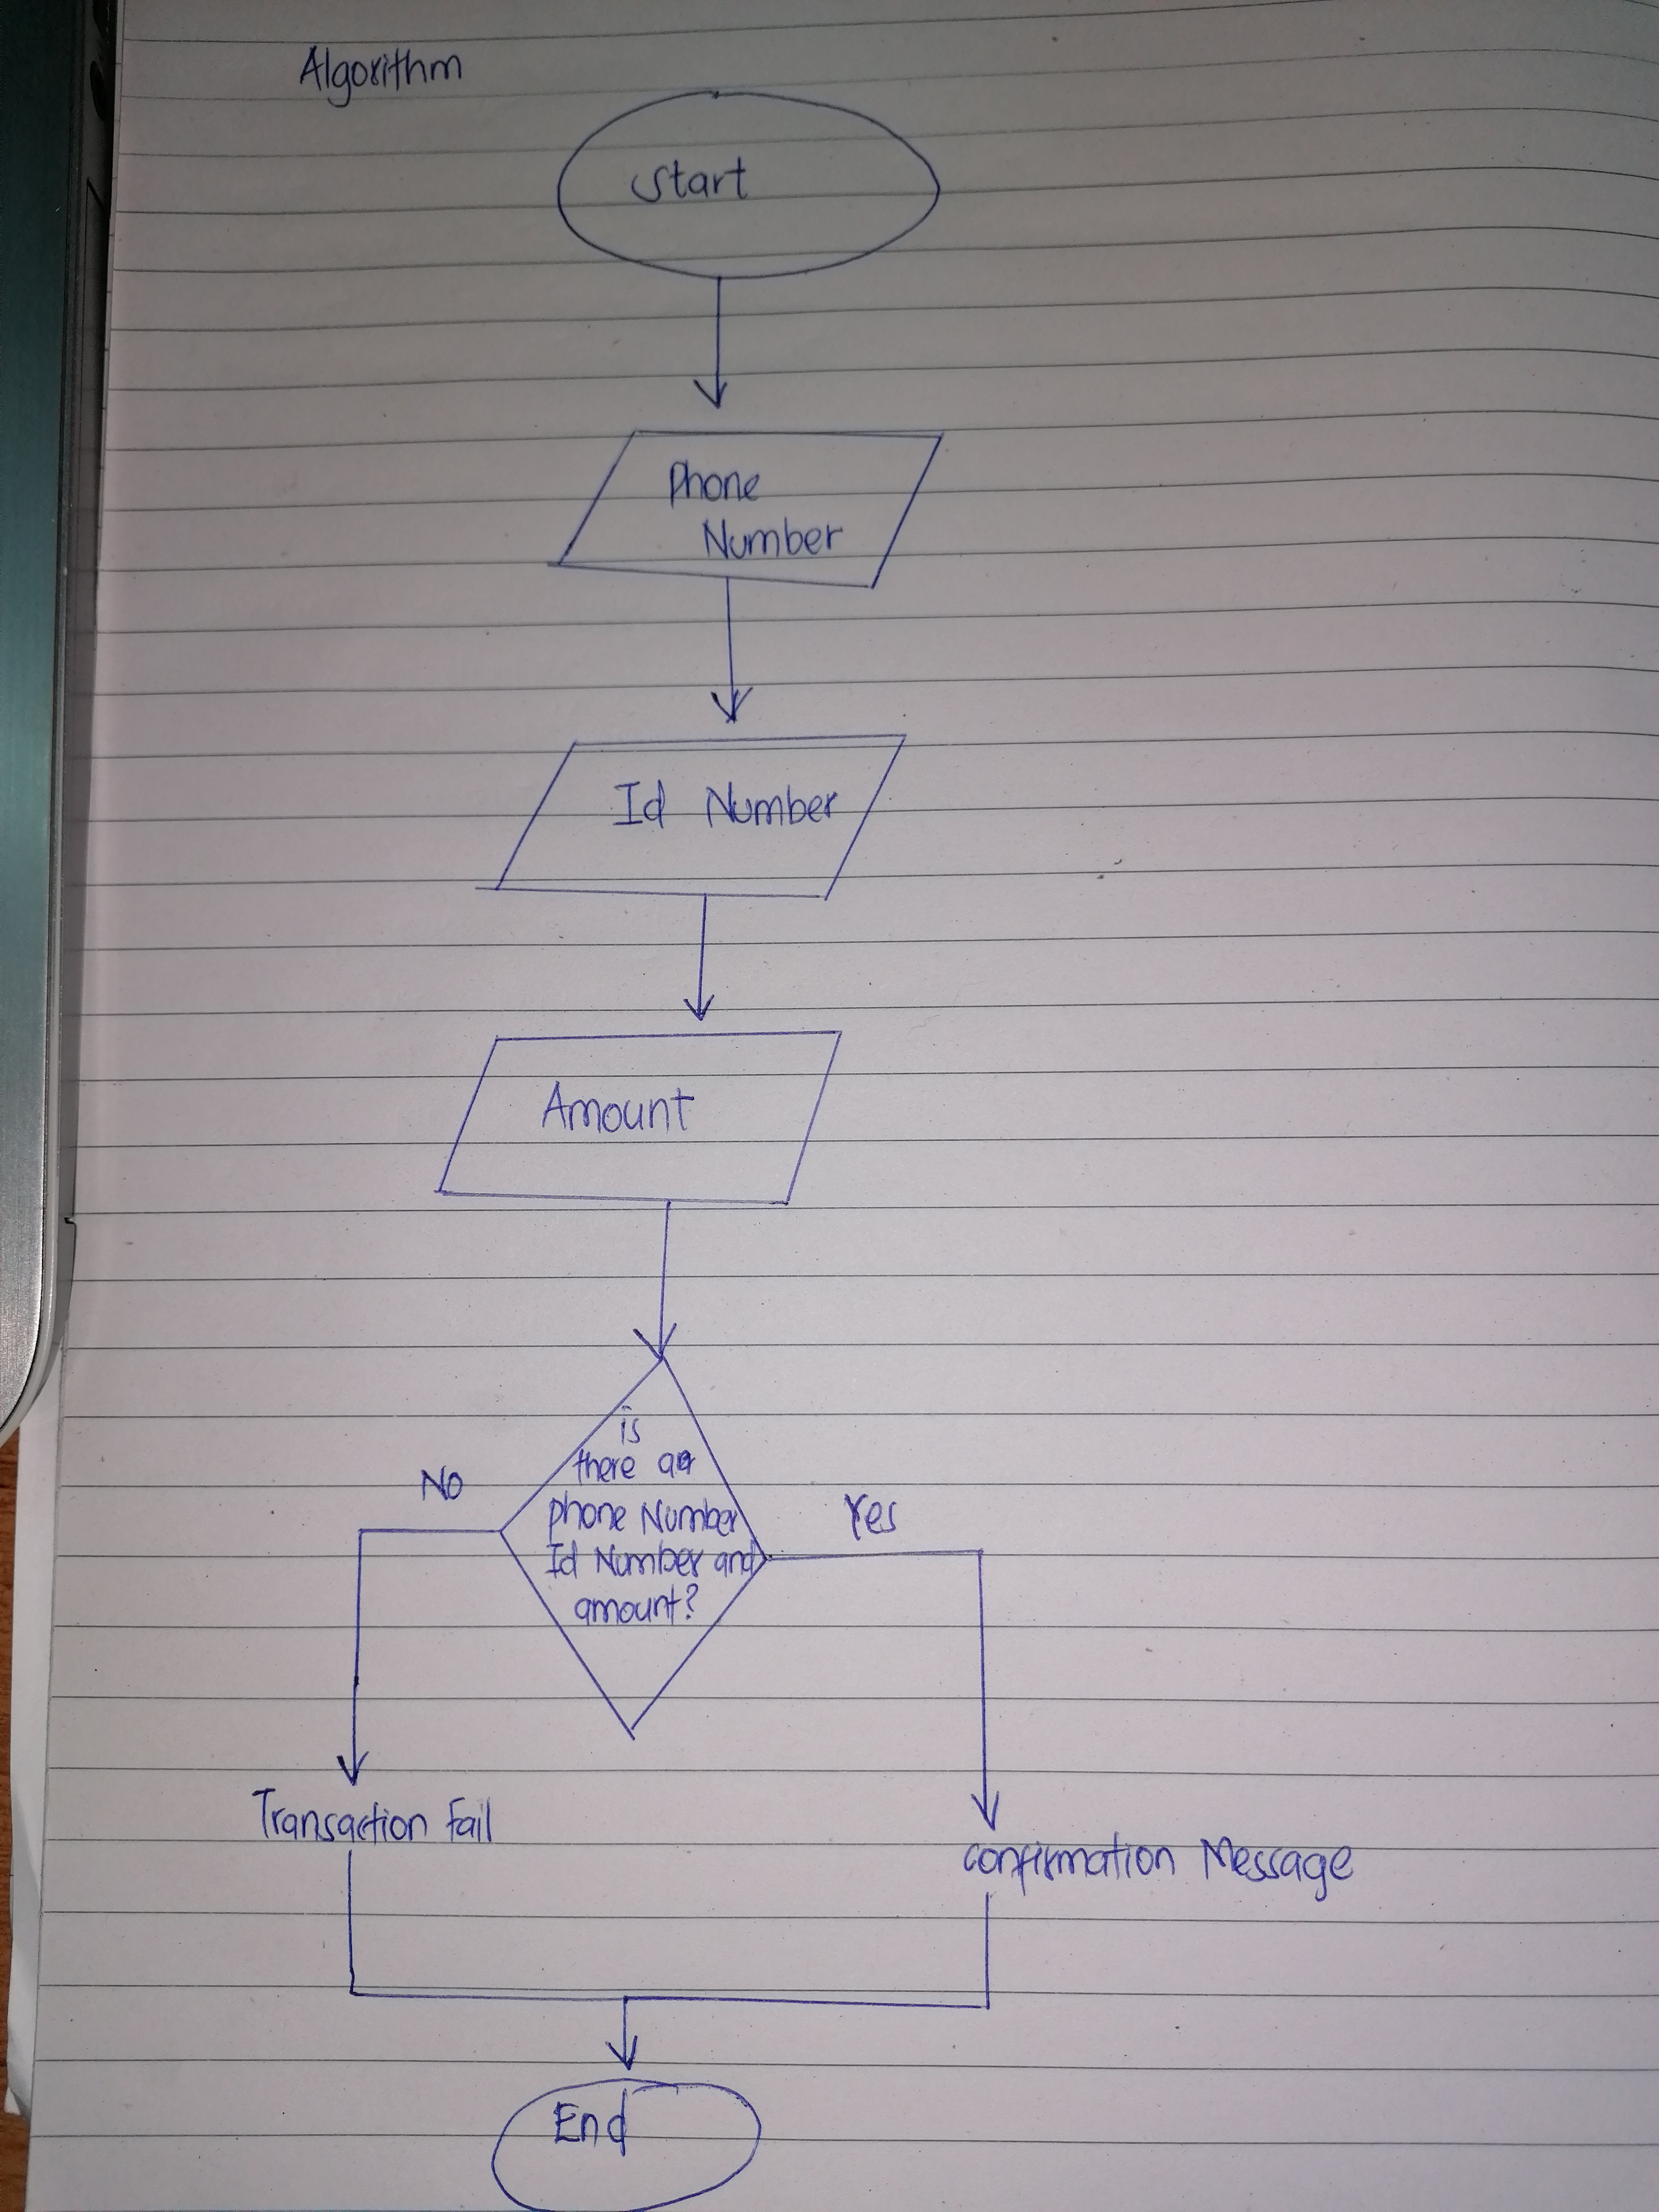 Algorithm
Start
Phone
Number
Id Number
Amount
is
there a
phone Number
Id Number and
amount?
No
Yes
Transaction Fail
confirmation Message
End